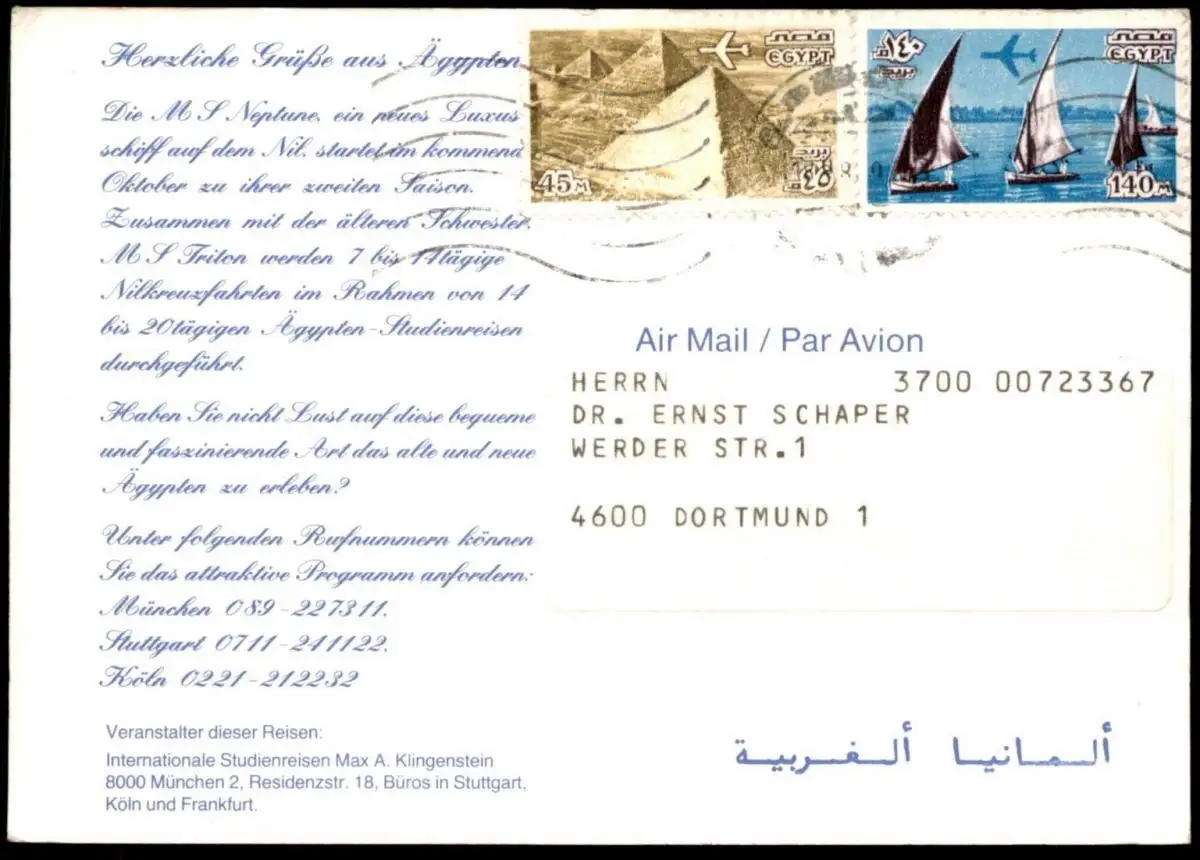 Herzliche Grüße aus Ägypten
Die M S Neptune, ein neues Luxus
schiff auf dem Nil, startet im kommend
Oktober zu ihrer zweiten Saison.
Zusammen mit der älteren Schwester,
M S Triton werden 7 bis 14tägige
Nilkreuzfahrten im Rahmen von 14
bis 20tägigen Ägypten-Studienreisen
durchgeführt.
Haben Sie nicht Lust auf diese bequeme
und faszinierende Art das alte und neue
Ägypten zu erleben?
Unter folgenden Rufnummern können
Sie das attraktive Programm anfordern:
München 089-227311,
Stuttgart 0711-241122,
Köln 0221-212232
Veranstalter dieser Reisen:
Internationale Studienreisen Max A. Klingenstein
8000 München 2, Residenzstr. 18, Büros in Stuttgart,
Köln und Frankfurt.
مصر
EGYPT
بريد
45M
٤٥م
١٤٠م
بريد
مصر
EGYPT
140M
Air Mail / Par Avion
HERRN 3700 00723367
DR. ERNST SCHAPER
WERDER STR.1
4600 DORTMUND 1
ألمانيا ألغربية